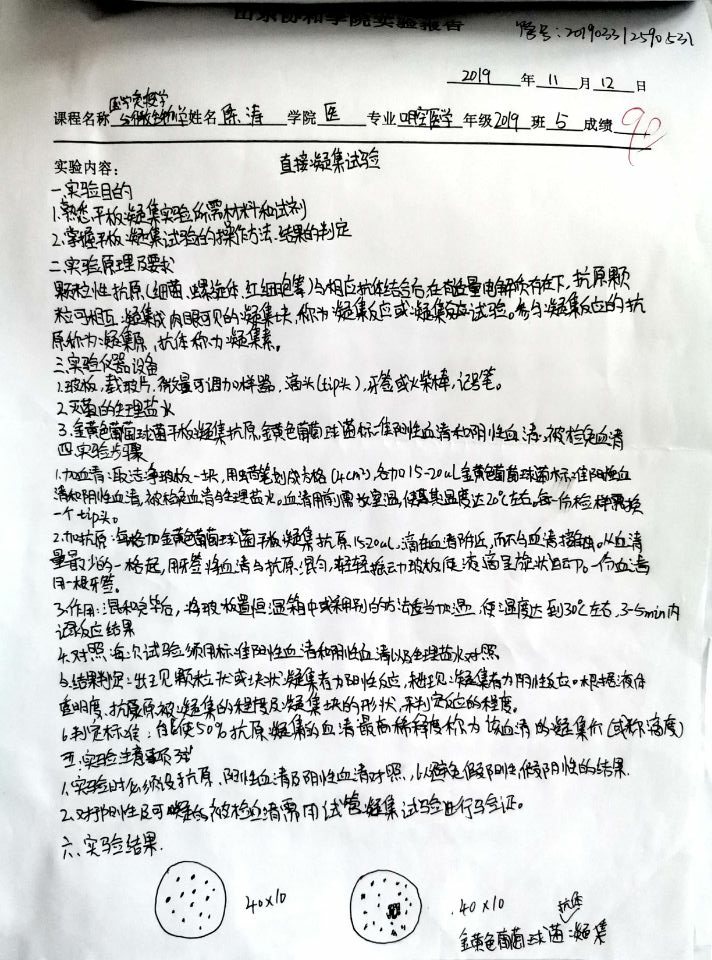 山东协和学院实验报告
学号：201903312590531
2019 年 11 月 12 日
课程名称 医学免疫学与微生物学 姓名 陈涛 学院 医 专业 口腔医学 年级 2019 班 5 成绩 90
实验内容： 直接凝集试验
一.实验目的
1.熟悉平板凝集实验所需材料和试剂
2.掌握平板凝集试验的操作方法、结果的判定
二.实验原理及要求
颗粒性抗原(细菌、螺旋体、红细胞等)与相应抗体结合后,在有适量电解质存在下,抗原颗
粒可相互凝集成肉眼可见的凝集块,称为凝集反应或凝集反应试验。参与凝集反应的抗
原称为凝集原,抗体称为凝集素。
三.实验仪器设备
1.玻板,载玻片,微量可调加样器,滴头(tip头),牙签或火柴棒,记号笔。
2.灭菌的生理盐水
3.金黄色葡萄球菌平板凝集抗原,金黄色葡萄球菌标准阳性血清和阴性血清、被检兔血清
四.实验步骤
1.加血清:取洁净玻板一块,用蜡笔划成方格(4cm²),各加15-20uL金黄色葡萄球菌标准阳性血
清和阴性血清,被检兔血清与生理盐水。血清用前需放室温,使其温度达20℃左右,每一份检样需换
一个tip头。
2.加抗原:每格加金黄色葡萄球菌平板凝集抗原15-20uL,滴在血清附近,而不与血清接触。从血清
量最少的一格起,用牙签将血清与抗原混匀,轻轻振动玻板使液滴呈旋状运动。一份血清
用一根牙签。
3.作用:混和完毕后,将玻板置恒温箱中或采用别的方法适当加温,使温度达到30℃左右,3-5min内
记录反应结果
4.对照:每次试验须用标准阳性血清和阴性血清以及生理盐水对照
5.结果判定:出现颗粒状或块状凝集者为阳性反应,未出现凝集者为阴性反应。根据液体
透明度、抗原被凝集的程度及凝集块的形状,来判定反应的程度。
6.判定标准:能使50%抗原凝集的血清最高稀释度称为该血清的凝集价(或称滴度)
五.实验注意事项
1.实验时必须设抗原、阳性血清及阴性血清对照,以避免假阳性,假阴性的结果.
2.对阳性及可疑的被检血清需用试管凝集试验进行验证。
六.实验结果.
40×10
.40×10
抗体
金黄色葡萄球菌凝集